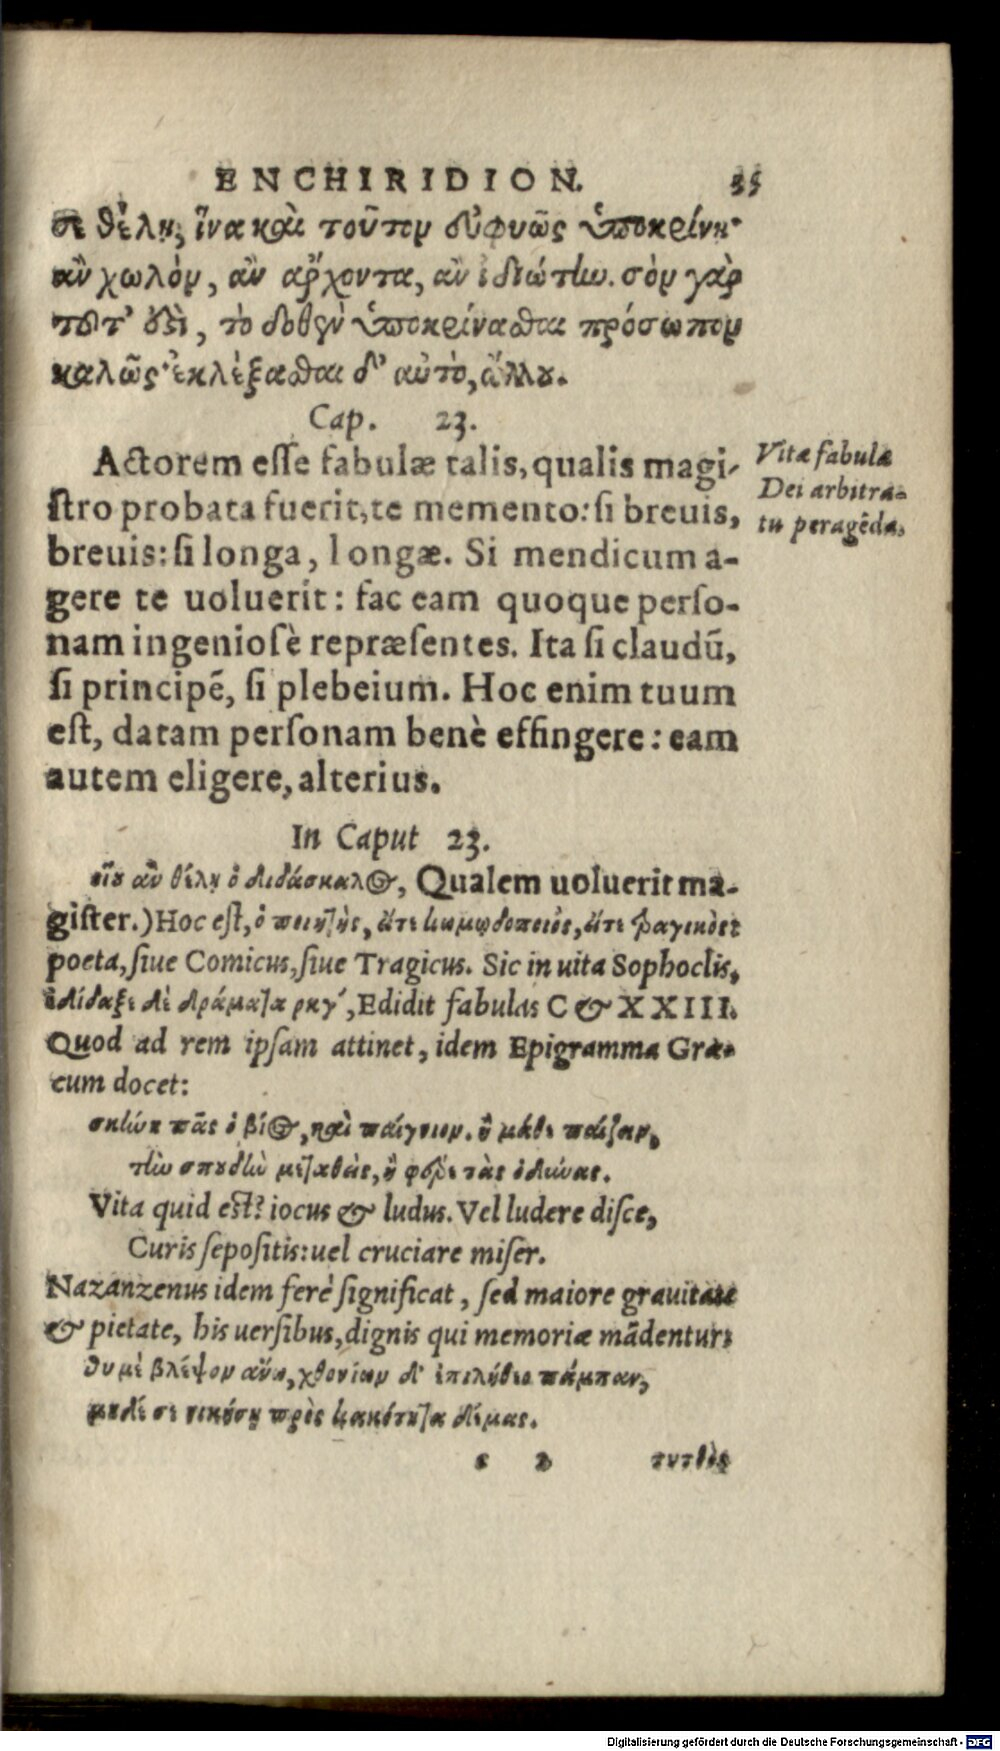 ENCHIRIDION. 35
σε θέλῃ, ἵνα καὶ τοῦτον εὐφυῶς ὑποκρίνῃ·
ἂν χωλὸν, ἂν ἄρχοντα, ἂν ἰδιώτην. σὸν γὰρ
τοῦτ' ἐστὶ, τὸ δοθὲν ὑποκρίνασθαι πρόσωπον
καλῶς· ἐκλέξασθαι δ' αὐτὸ, ἄλλου.
Cap. 23.
Actorem eſſe fabulæ talis, qualis magi-
ſtro probata fuerit, te memento: ſi breuis,
breuis: ſi longa, longæ. Si mendicum a-
gere te uoluerit: fac eam quoque perſo-
nam ingenioſè repræſentes. Ita ſi claudū,
ſi principē, ſi plebeium. Hoc enim tuum
eſt, datam perſonam benè effingere: eam
autem eligere, alterius.
Vitæ fabula
Dei arbitra-
tu peragēda.
In Caput 23.
οἵου ἂν θέλῃ ὁ διδάσκαλος, Qualem uoluerit ma-
giſter.) Hoc eſt, ὁ ποιητὴς, εἴτε κωμῳδοποιὸς, εἴτε τραγικὸς:
poeta, ſiue Comicus, ſiue Tragicus. Sic in uita Sophoclis,
ἐδίδαξε δὲ δράματα ρκγ', Edidit fabulas C & XXIII.
Quod ad rem ipſam attinet, idem Epigramma Græ-
cum docet:
σκηνὴ πᾶς ὁ βίος, καὶ παίγνιον. ἢ μάθε παίζειν,
τὴν σπουδὴν μεταθεὶς, ἢ φέρε τὰς ὀδύνας.
Vita quid eſt? iocus & ludus. Vel ludere diſce,
Curis ſepoſitis: uel cruciare miſer.
Nazanzenus idem ferè ſignificat, ſed maiore grauitate
& pietate, his uerſibus, dignis qui memoriæ mādentur:
θυμὲ βλέψον ἄνω, χθονίων δ' ἐπιλήθεο πάμπαν,
μηδέ σε νικήσῃ πρὸς κακότητα δέμας.
c 2 τυτθὸς
Digitalisierung gefördert durch die Deutsche Forschungsgemeinschaft - DFG